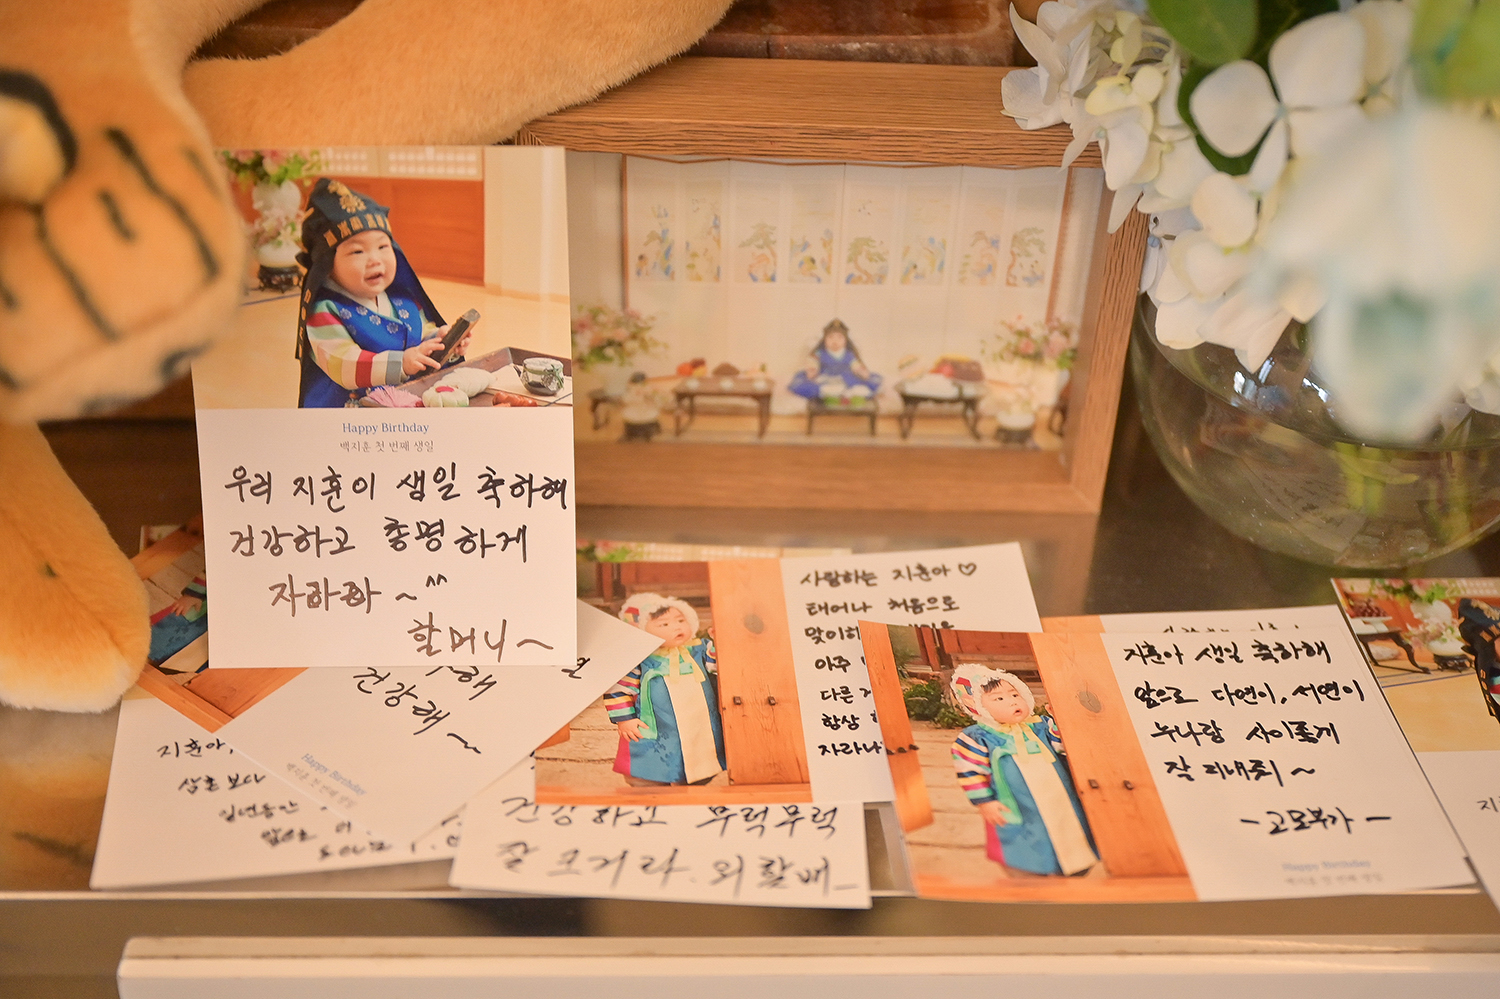 Happy Birthday
백지훈 첫 번째 생일
우리 지훈이 생일 축하해
건강하고 총명하게
자라라 ~^^
할머니~
건강해~
Happy Birthday
백지훈 첫 번째 생일
지훈아,
삼촌 보다
일년동안
건강하고 무럭무럭
잘 크거라. 외할배_
사랑하는 지훈아 ♡
태어나 처음으로
맞이하
아주
다른
항상
자라나
지훈아 생일 축하해
앞으로 다연이, 서연이
누나랑 사이좋게
잘 지내줘 ~
- 고모부가 -
Happy Birthday
백지훈 첫 번째 생일